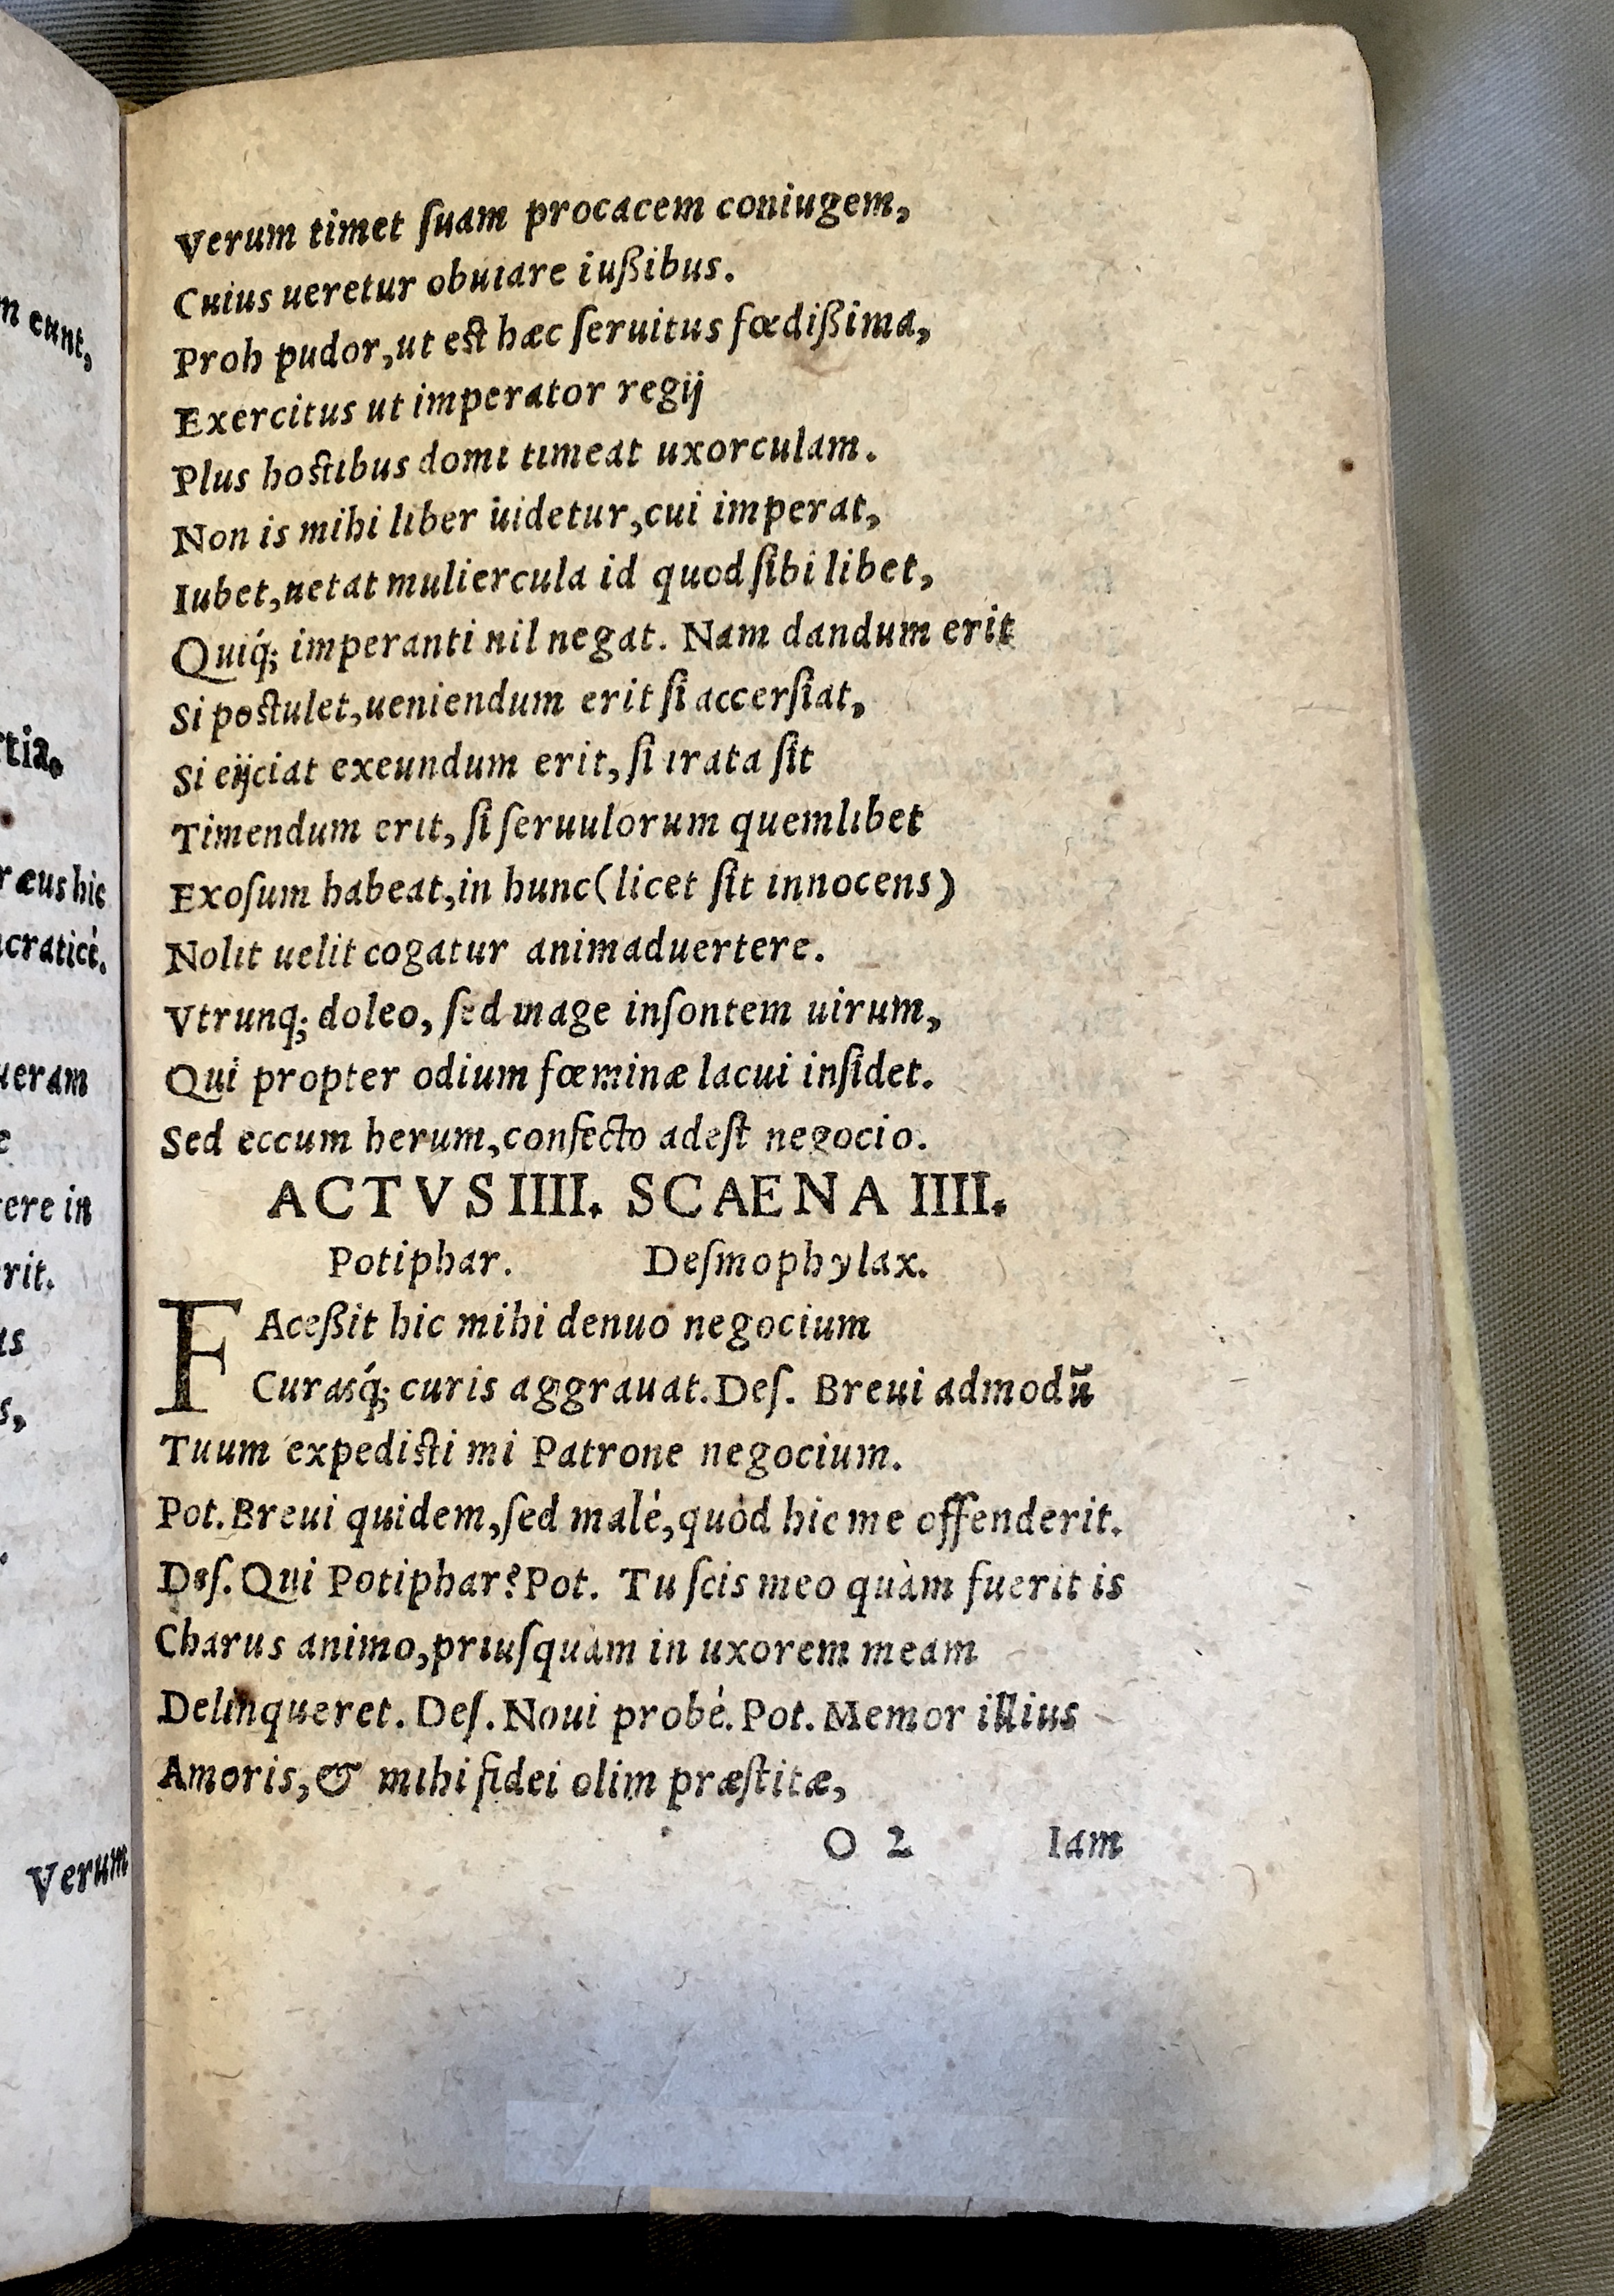 Verum timet ſuam procacem coniugem,
Cuius ueretur obuiare iußibus.
Proh pudor, ut est hæc ſeruitus fœdißima,
Exercitus ut imperator regij
Plus hostibus domi timeat uxorculam.
Non is mihi liber uidetur, cui imperat,
Iubet, uetat muliercula id quod ſibi libet,
Quiq́; imperanti nil negat. Nam dandum erit
Si postulet, ueniendum erit ſi accerſiat,
Si eijciat exeundum erit, ſi irata ſit
Timendum erit, ſi ſeruulorum quemlibet
Exoſum habeat, in hunc (licet ſit innocens)
Nolit uelit cogatur animaduertere.
Vtrunq; doleo, ſed mage inſontem uirum,
Qui propter odium fœminæ lacui inſidet.
Sed eccum herum, confecto adeſt negocio.
ACTVS IIII. SCAENA IIII.
Potiphar. Deſmophylax.
FAceßit hic mihi denuo negocium
Curasq́; curis aggrauat. Deſ. Breui admodū
Tuum expedisti mi Patrone negocium.
Pot. Breui quidem, ſed malè, quòd hic me offenderit.
Deſ. Qui Potiphar? Pot. Tu ſcis meo quàm fuerit is
Charus animo, priuſquàm in uxorem meam
Delinqueret. Deſ. Noui probè. Pot. Memor illius
Amoris, & mihi fidei olim præſtitæ,
O 2 Iam
m eunt,
rtia.
ræus hic
ueram
ere in
rit.
Verum